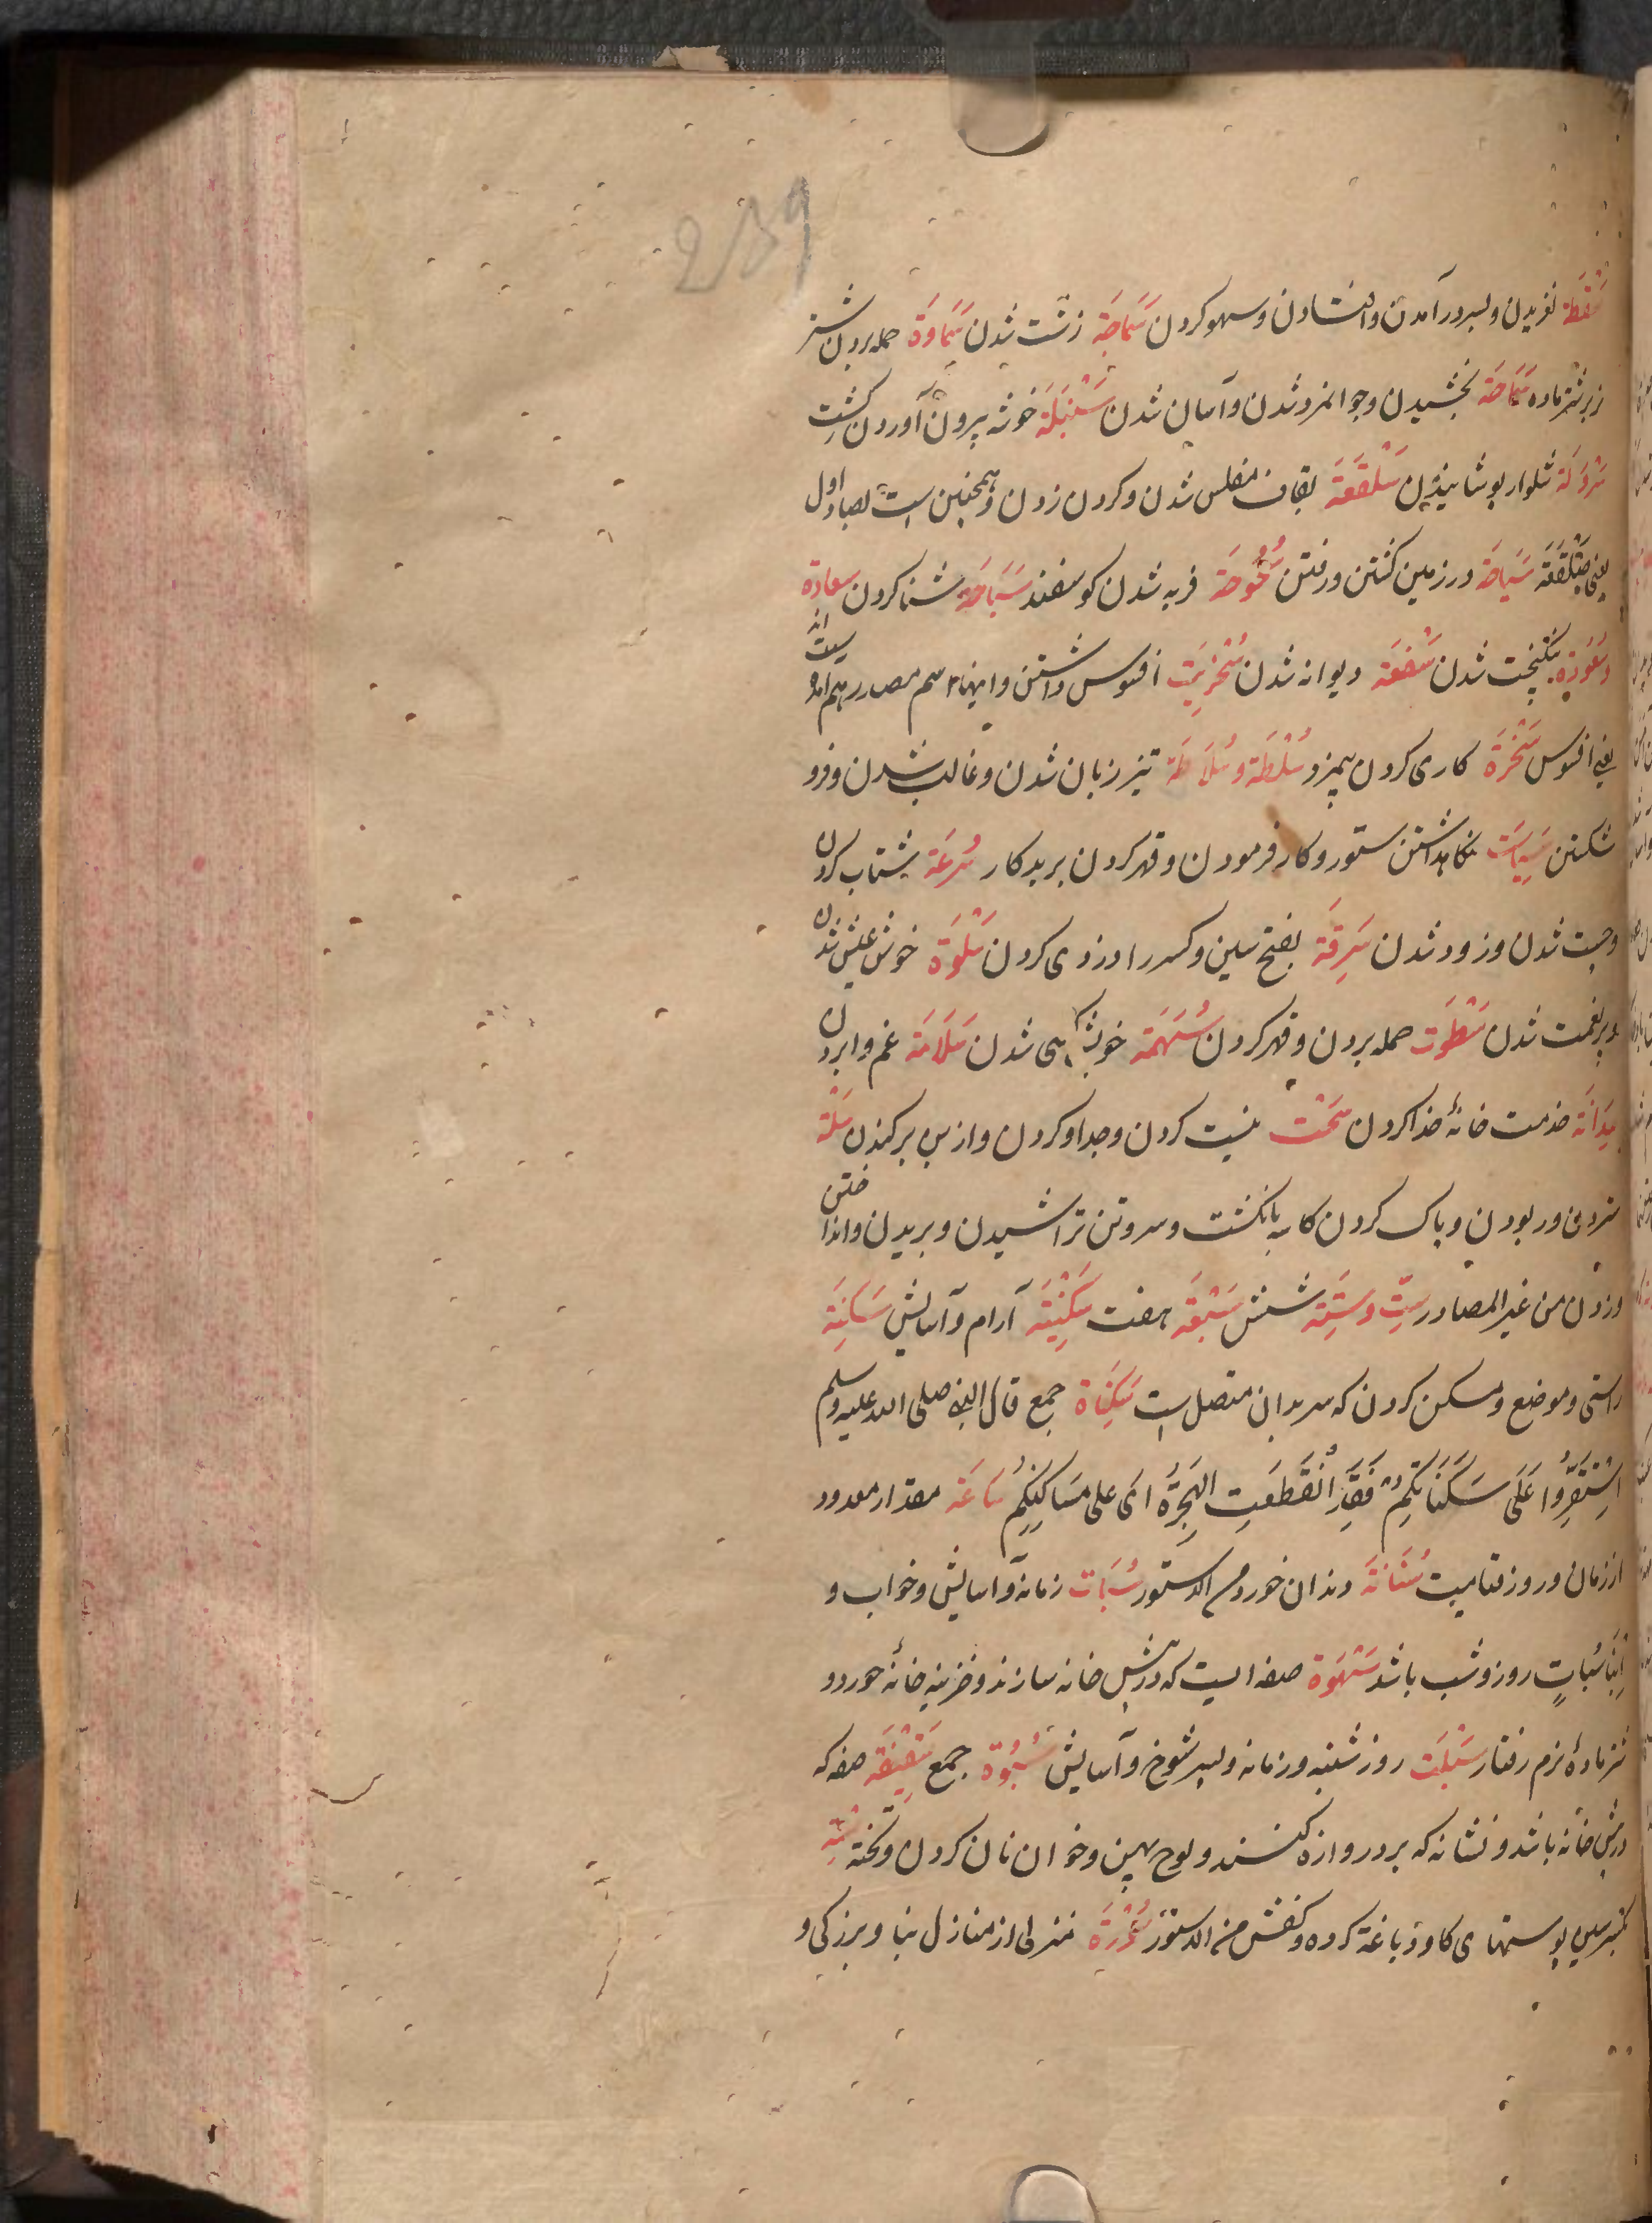 239
سَقْطَة لغزیدن و بسر در آمدن و افتادن و سهو کردن سَمَاجَة زشت شدن سَمَاوَة حمله بردن شتر
نر بر شتر ماده سَمَاحَة بخشیدن و جوانمرد شدن و آسان شدن سَنْبَلَة خوشه بیرون آوردن کشت
سَرْوَلَة شلوار پوشانیدن سَلْقَعَة بقاف مفلس شدن و کردن زدن و همچنین است بصاد اول
یعنی صَلْقَعَة سَیَاحَة در زمین کشتن و رفتن سُحُوحَة فربه شدن کوسفند سَبَاحَة شنا کردن سعادة
و سُعُودَة نیکبخت شدن سَفعَة دیوانه شدن سُخْرِیَت افسوس داشتن و اینها اسم مصدر هم آمده است
یعنی افسوس سُخْرَة کاری کردن بیمزد سُلْطَة و سُلَاطَة تیز زبان شدن و غالب شدن و فرو
شکستن سِیَاسَت نکاهداشتن ستور و کار فرمودن و قهر کردن بر بدکار سُرعَة شتاب کردن
و چست شدن و زود شدن سَرِقَة بفتح سین و کسر را دزدی کردن سَلْوَة خوش عیش شدن
و پر نعمت شدن سَطْوَت حمله بردن و قهر کردن سُهَمَة خویش شدن سَلَامَة غم وا بردن
سِدَانَة خدمت خانهٔ خدا کردن سَحْت نیست کردن و جدا و کردن و از بن برکندن سَلْة
ستردن و ربودن و پاک کردن کاسه بانکشت و سر و تن تراشیدن و بریدن و انداختن
و زدن من غیر المصادر سِتّ و سِتَّة شش سَبْعَة هفت سَکِیْنَة آرام و آسایش سَکِنَة
راستی و موضع و مسکن کردن که سر بدان متصل است سَکِنَاة جمع قال النبی صلی الله علیه وسلم
اِسْتَقِرُّوا عَلَی سَکَنَاتِکُم فَقَدِ انْقَطَعَتِ الهِجْرَةُ ای علی مَسَاکِنِکُم سَاعَة مقدار معدود
از زمان و روز قیامت سُنَانَة دندان خورد من الدستور سُبَات زمانه و آسایش و خواب و
اِبْنَا سُبَاتٍ روز و شب باشد سَهْوَة صفه ایست که در پیش خانه سازند و خزینه خانهٔ خورد و
شتر مادهٔ نرم رفتار سَبْت روز شنبه و زمانه و پسر شوخ و آسایش سُبُوت جمع سَقِیْفَة صفه که
در پیش خانه باشد و نشانه که بر دروازه کنند و لوح پهین و خوان نان کردن و تخته سِبْتِة
بکسر سین پوستهای کاو دباغة کرده و کفش من الدستور سُوْرَة منزلی از منازل بنا و بزرکی و